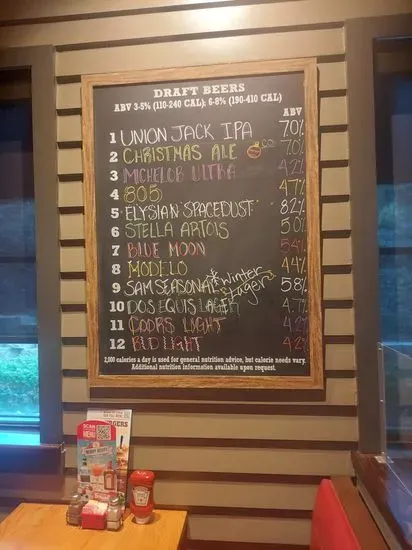 DRAFT BEERS
ABV 3-5% (110-240 CAL); 6-8% (190-410 CAL)
ABV
1 UNION JACK IPA 7.0%
2 CHRISTMAS ALE CO. 7.0%
3 MICHELOB ULTRA 4.2%
4 805 4.7%
5 ELYSIAN SPACEDUST 8.2%
6 STELLA ARTOIS 5.0%
7 BLUE MOON 5.4%
8 MODELO 4.4%
9 SAM SEASONAL *Winter Lager* 5.8%
10 DOS EQUIS LAGER 4.7%
11 COORS LIGHT 4.2%
12 BUD LIGHT 4.2%
2,000 calories a day is used for general nutrition advice, but calorie needs vary.
Additional nutrition information available upon request.
SCAN
MENU
HEINZ